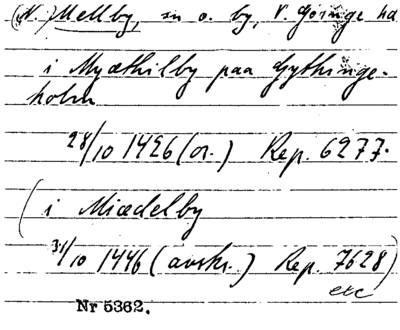 (N.) Mellby, sn o. by, V. Göinge hd
i Myæthilby paa Gythinge-
holm
28/10 1426 (or.) Rep. 6277.
( i Miædelby
31/10 1446 (avskr.) Rep. 7628)
etc
Nr 5362.